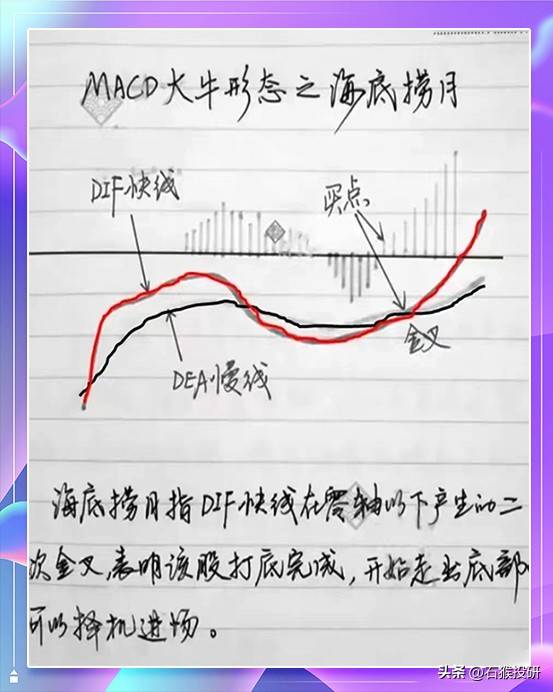 MACD大牛形态之海底捞月
DIF快线
买点
金叉
DEA慢线
海底捞月指DIF快线在零轴以下产生的二
次金叉,表明该股打底完成,开始走出底部
可以择机进场。
头条 @石猴投研